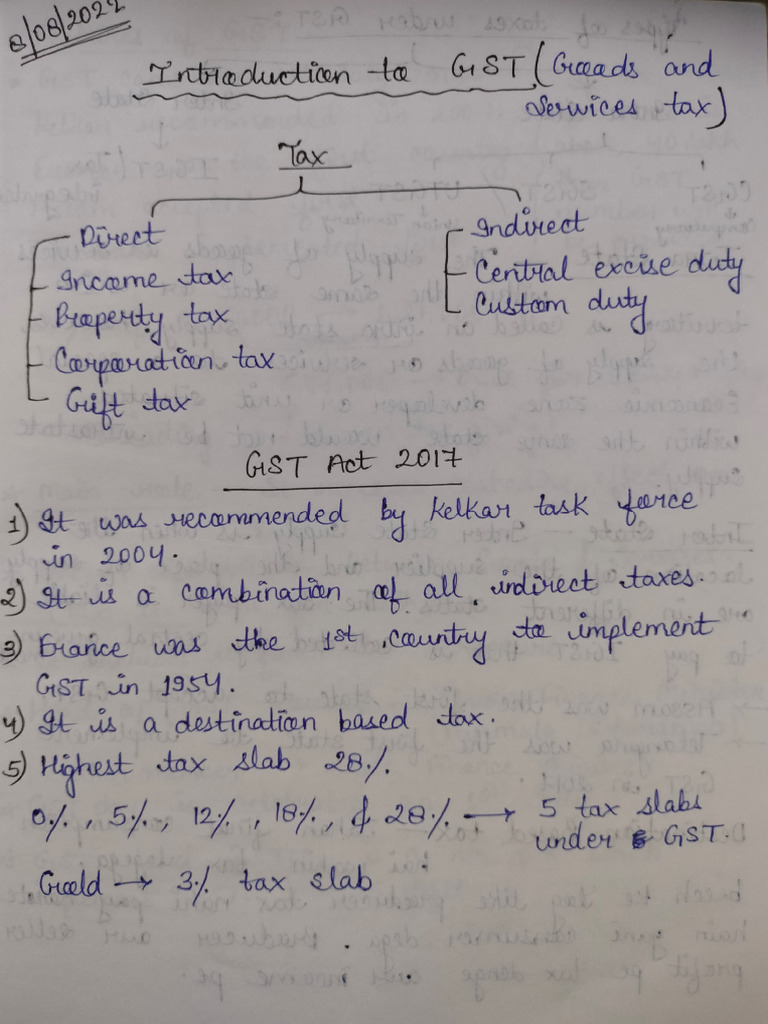 8/08/2022
Introduction to GST (Goods and
Services tax)
Tax
Direct
Income tax
Property tax
Corporation tax
Gift tax
Indirect
Central excise duty
Custom duty
GST Act 2017
1) It was recommended by Kelkar task force
in 2004.
2) It is a combination of all indirect taxes.
3) France was the 1st country to implement
GST in 1954.
4) It is a destination based tax.
5) Highest tax slab 28%.
0%, 5%, 12%, 18%, & 28% → 5 tax slabs
under GST.
Gold → 3% tax slab